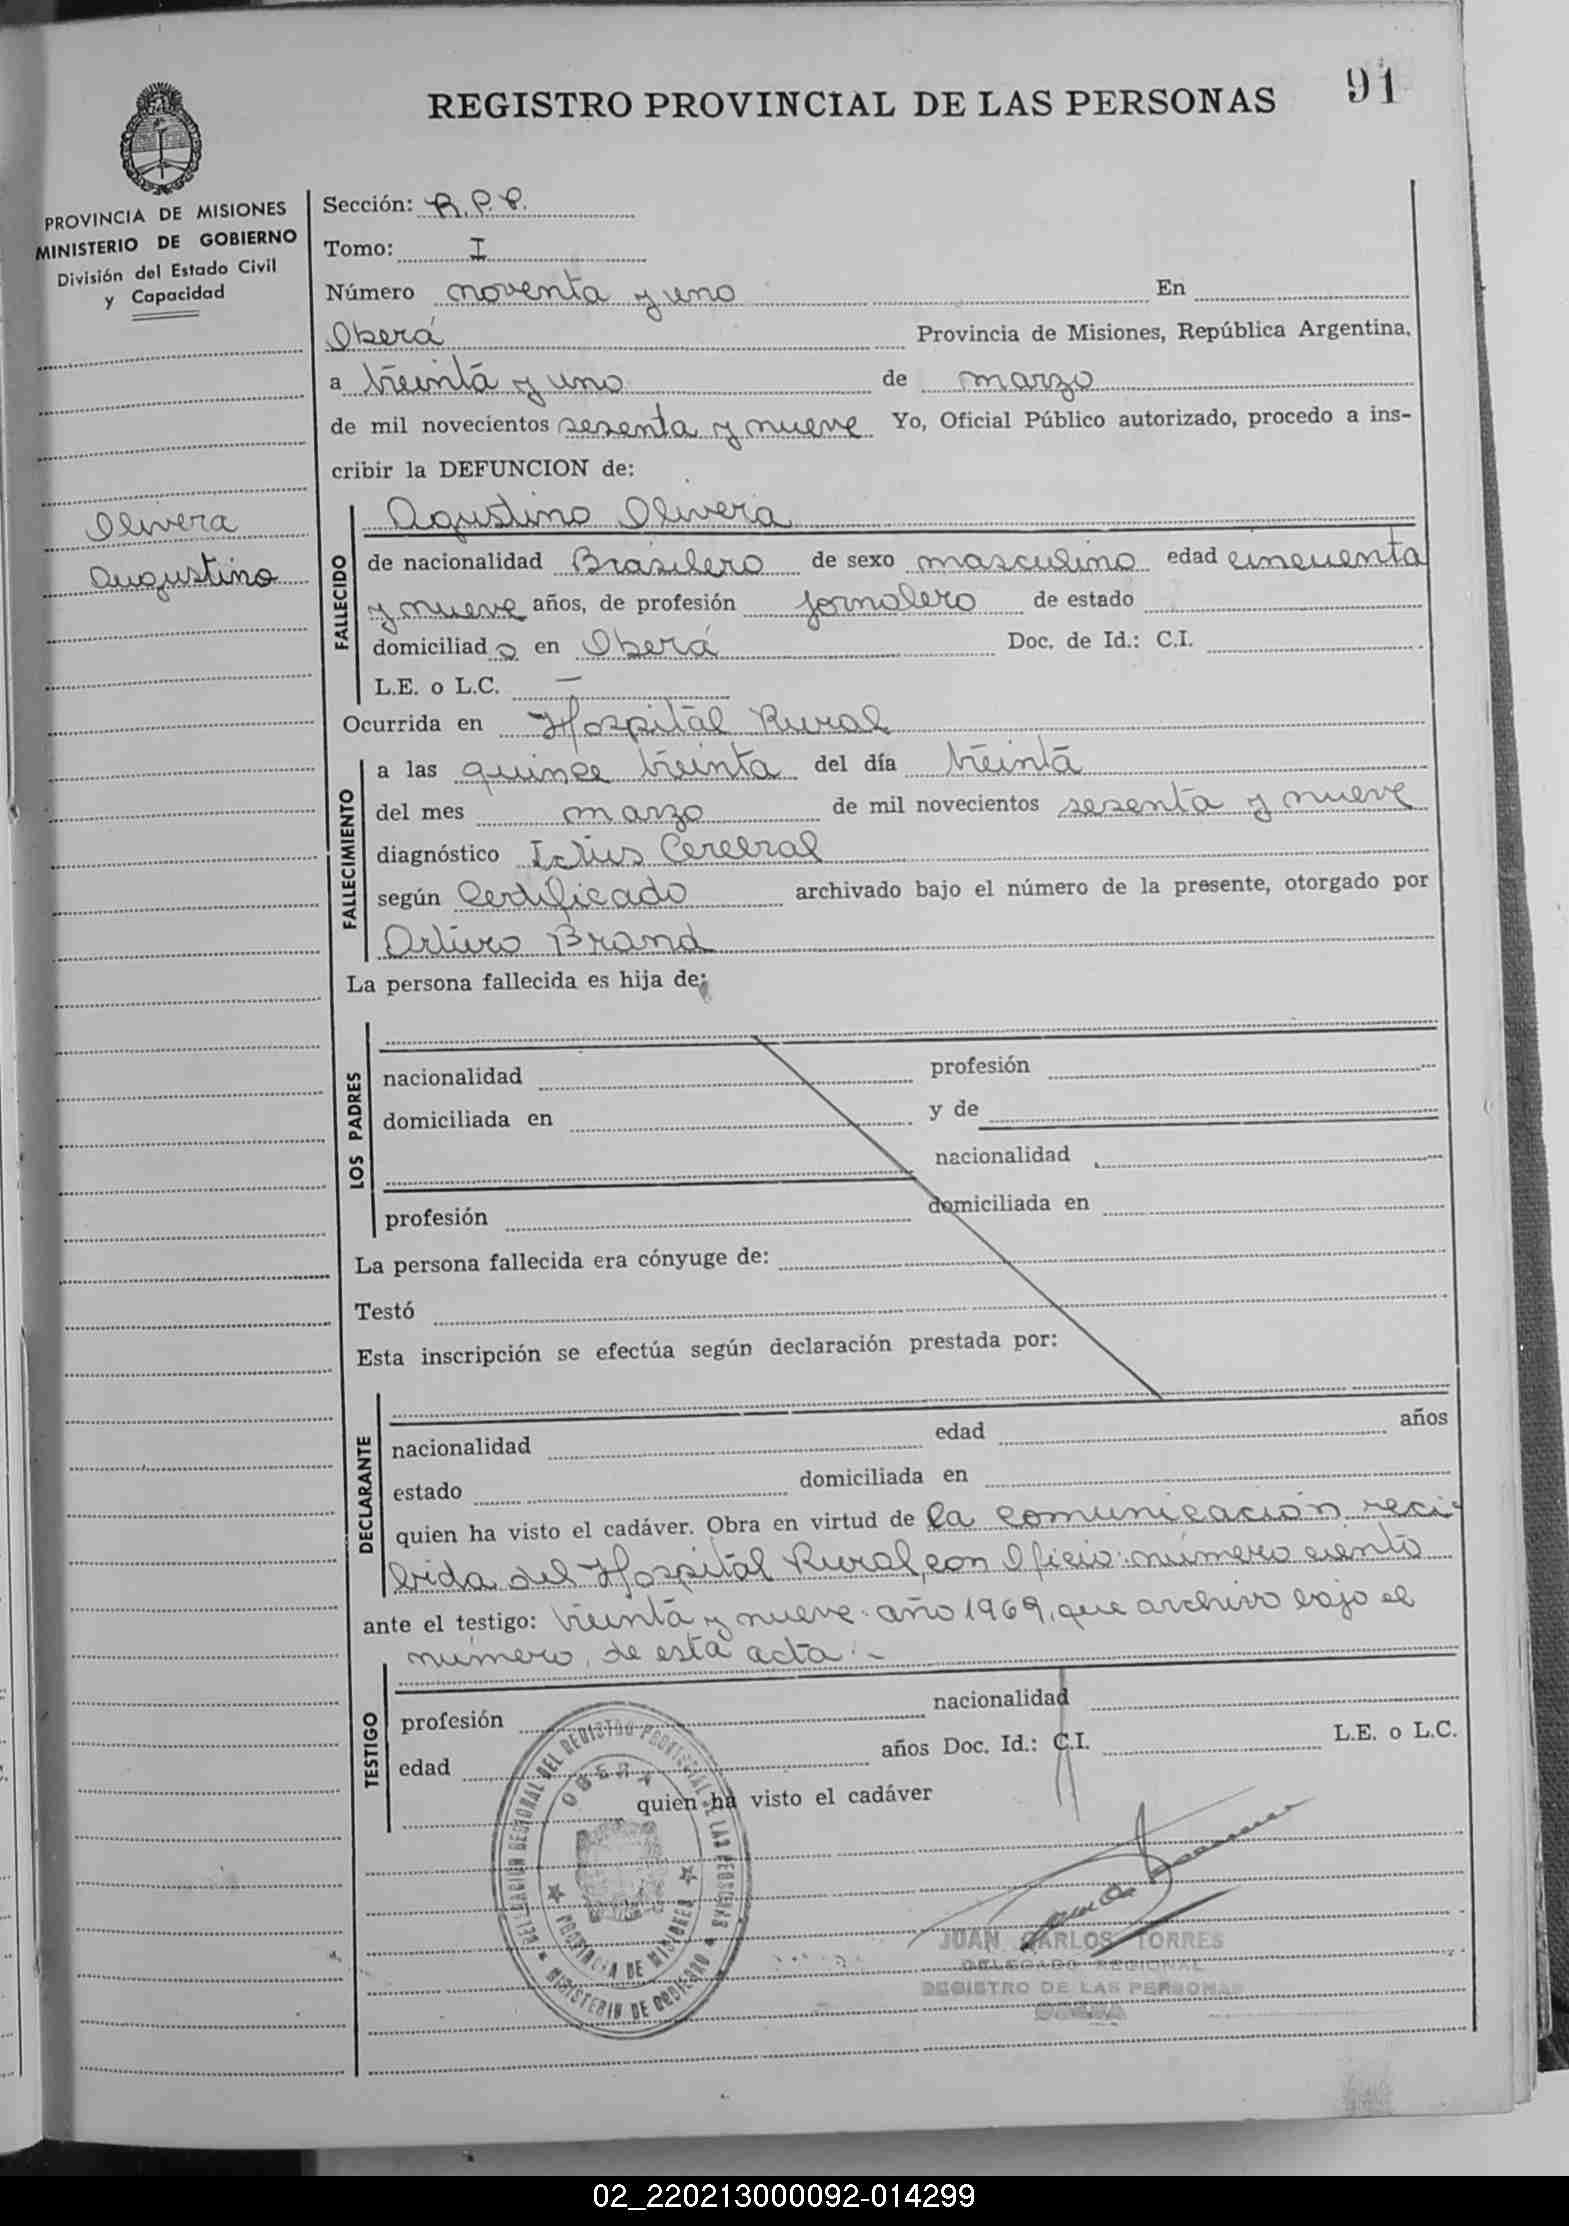 REGISTRO PROVINCIAL DE LAS PERSONAS 91
PROVINCIA DE MISIONES
MINISTERIO DE GOBIERNO
División del Estado Civil
y Capacidad
Olivera
Augustino
Sección: R.P.P.
Tomo: I
Número noventa y uno En
Oberá Provincia de Misiones, República Argentina,
a treinta y uno de marzo
de mil novecientos sesenta y nueve Yo, Oficial Público autorizado, procedo a ins-
cribir la DEFUNCION de:
FALLECIDO
Agustino Olivera
de nacionalidad Brasilero de sexo masculino edad cincuenta
y nueve años, de profesión jornalero de estado
domiciliado en Oberá Doc. de Id.: C.I.
L.E. o L.C. —
Ocurrida en Hospital Rural
FALLECIMIENTO
a las quince treinta del día treinta
del mes marzo de mil novecientos sesenta y nueve
diagnóstico Ictus Cerebral
según Certificado archivado bajo el número de la presente, otorgado por
Arturo Brand
La persona fallecida es hija de:
LOS PADRES
nacionalidad profesión
domiciliada en y de
nacionalidad
profesión domiciliada en
La persona fallecida era cónyuge de:
Testó
Esta inscripción se efectúa según declaración prestada por:
DECLARANTE
nacionalidad edad años
estado domiciliada en
quien ha visto el cadáver. Obra en virtud de la comunicación reci-
bida del Hospital Rural, con Oficio: número ciento
ante el testigo: treinta y nueve año 1969, que archivo bajo el
número, de esta acta.-
TESTIGO
profesión nacionalidad
edad años Doc. Id.: C.I. L.E. o L.C.
quien ha visto el cadáver
DELEGACION REGIONAL DEL REGISTRO PROVINCIAL DE LAS PERSONAS
OBERA
PROVINCIA DE MISIONES
MINISTERIO DE GOBIERNO
JUAN CARLOS TORRES
DELEGADO REGIONAL
REGISTRO DE LAS PERSONAS
OBERA
02_220213000092-014299